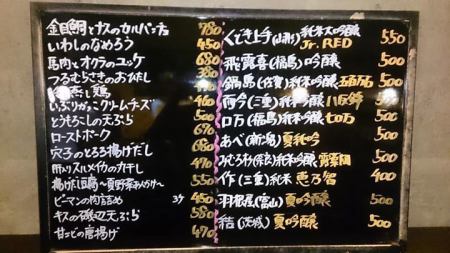 金目鯛とナスのカルパッチョ 780
いわしのなめろう 450
馬肉とオクラのユッケ 680
つるむらさきのおひたし 380
蒸し鶏
いぶりがっこクリームチーズ 460
とうもろこしの天ぷら 500
ローストポーク 670
穴子のとろろ揚げだし 680
スルメイカの一夜干し 470
揚げだし豆腐〜夏野菜あんかけ〜 550
ピーマンの肉詰め 3ケ 450
キスの磯辺天ぷら 580
甘エビの唐揚げ 470
くどき上手(山形)純米大吟醸 Jr. RED 550
飛露喜(福島)吟醸 500
鍋島(佐賀)純米吟醸 五百万石 500
而今(三重)純米吟醸 八反錦 500
ロ万(福島)純米吟醸 七ロ万 500
あべ(新潟)夏純吟 500
純米吟醸 500
作(三重)純米 恵乃智 400
羽根屋(富山)夏吟醸 500
結(茨城)夏吟醸 500